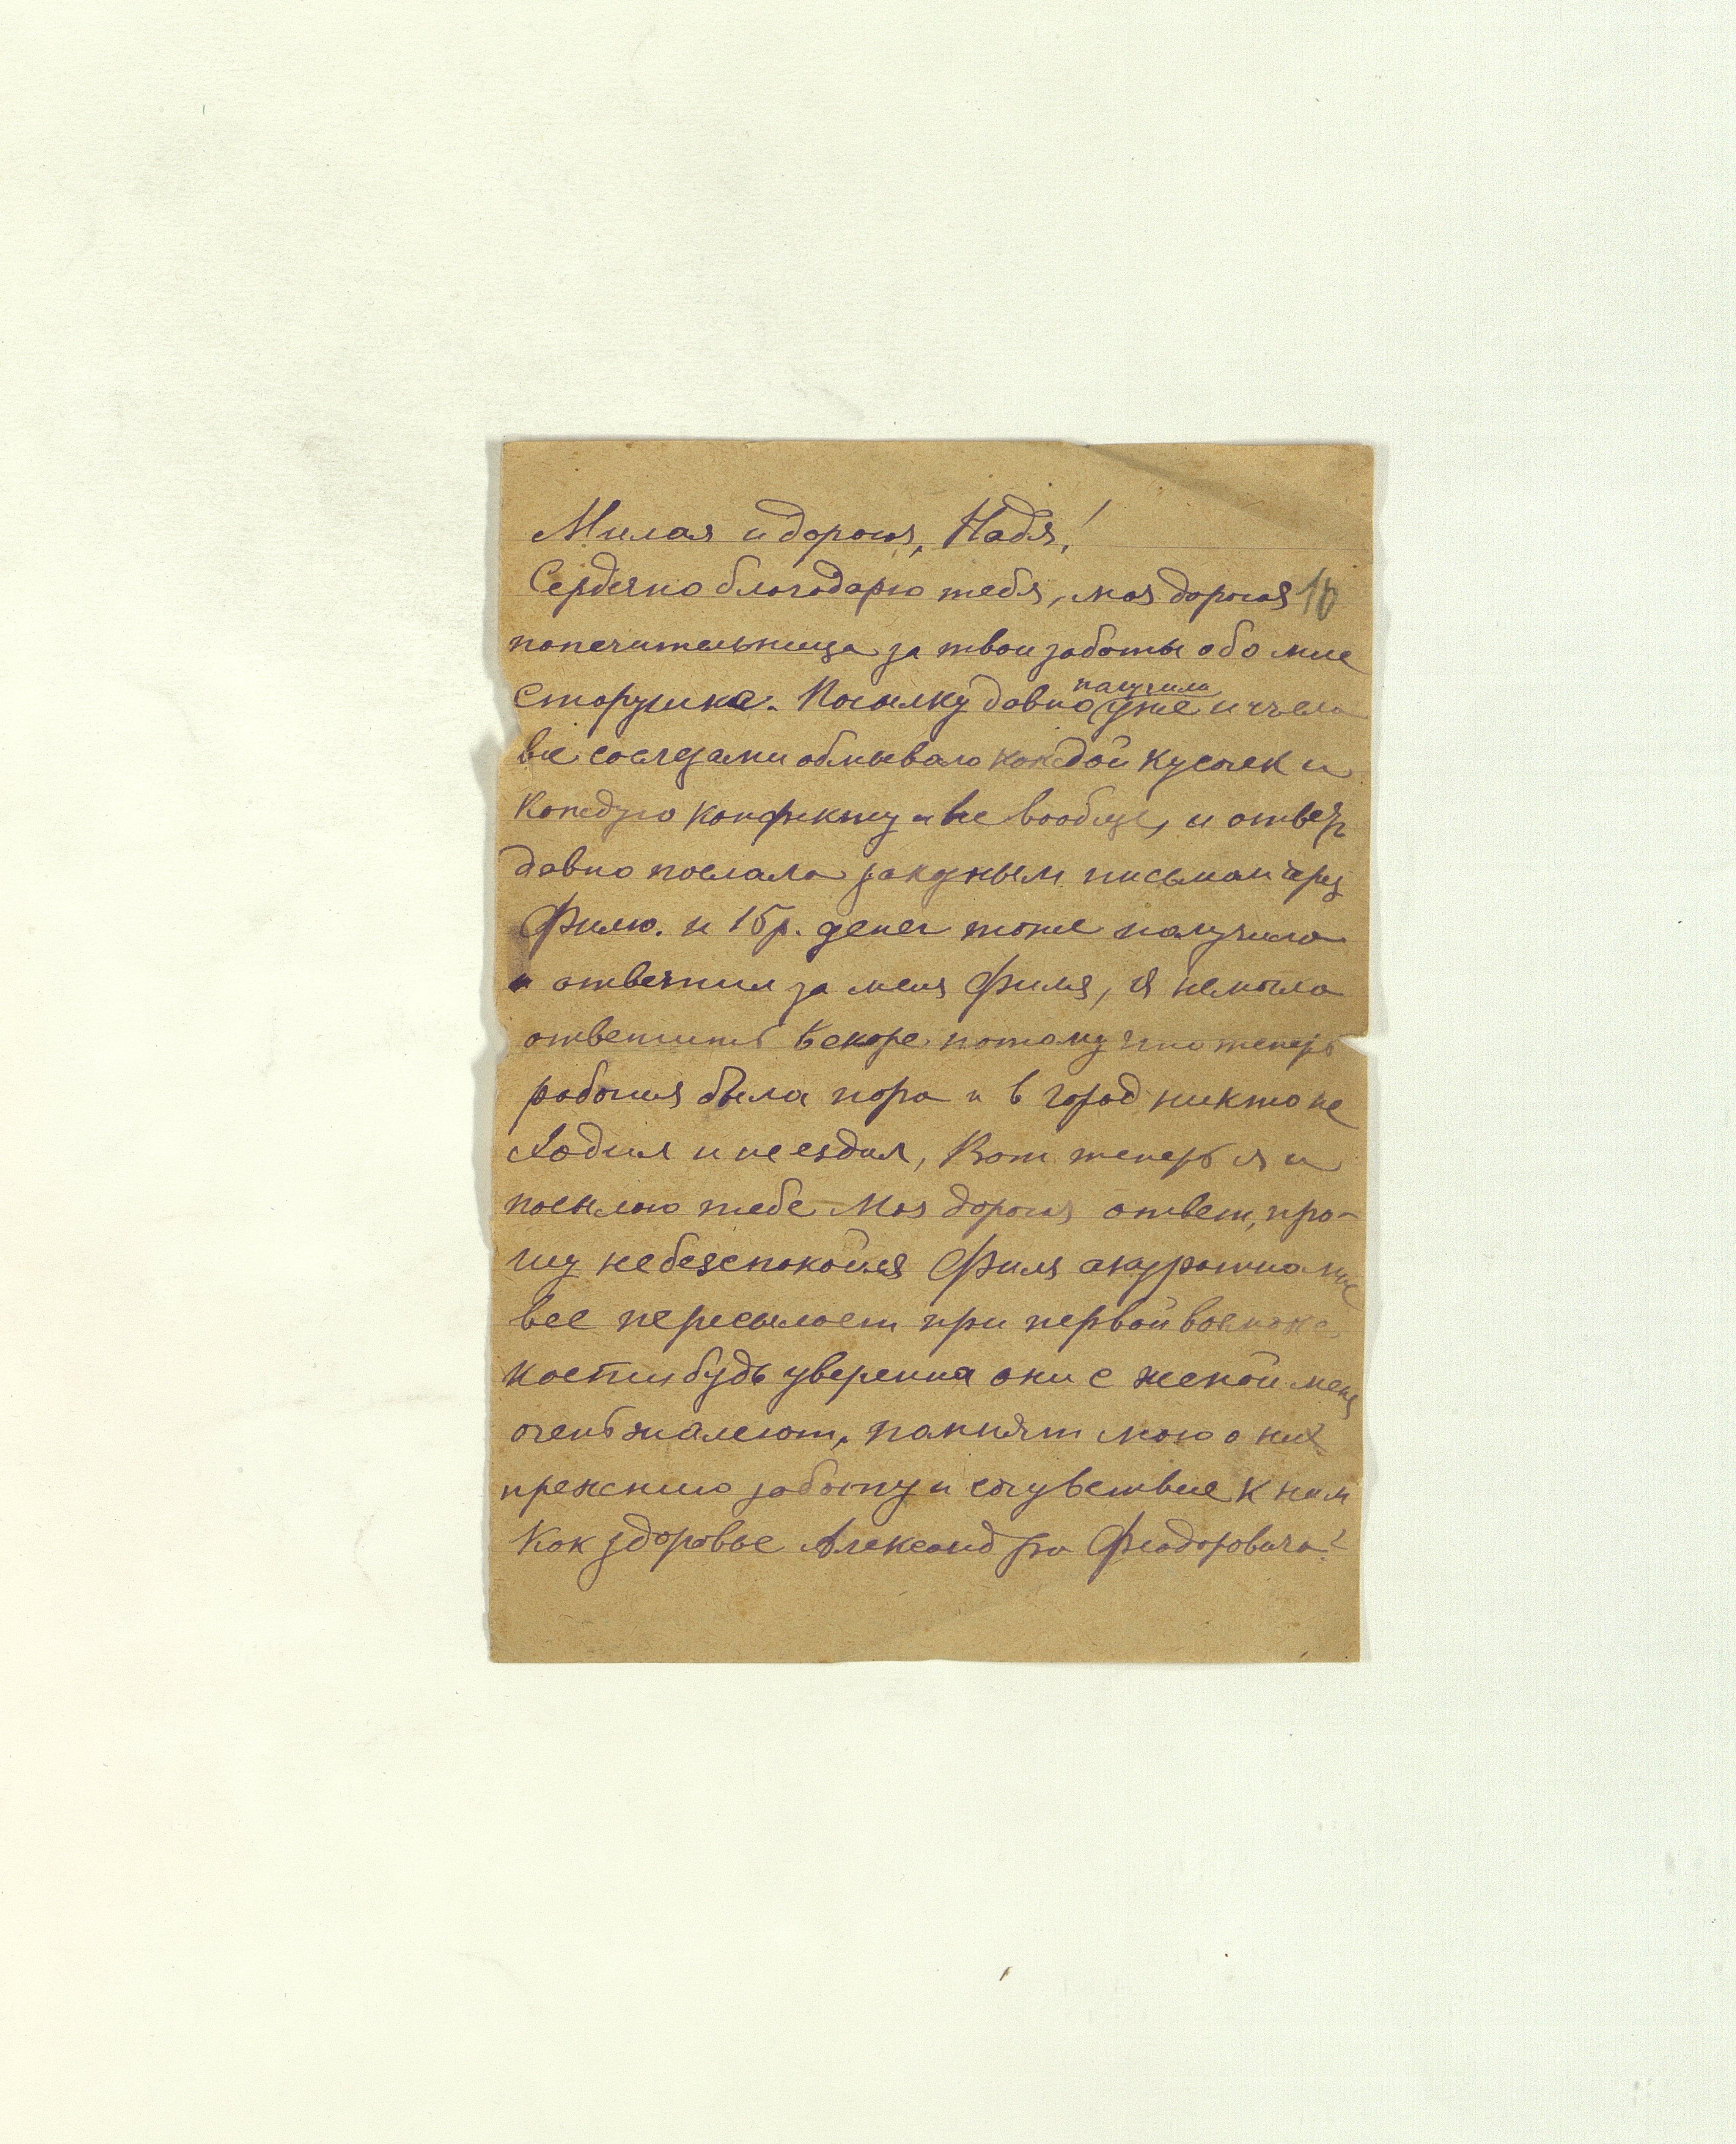 Милая и дорогая, Надя!
Сердечно благодарю тебя, моя дорогая 10
попечительница за твои заботы обо мне
старушке. Посылку давно получила уже и чъела
все со слезами обмываю каждой кусочек и
каждую конфекту и все вообще, и ответ
давно послала закузным письмом через
Филю. и 15 р. денег тоже получила
и ответил за меня Филя, я не могла
ответить вскоре потому что теперь
рабочия была пора и в город никто не
ходил и не ездил, Вот теперь я и
посылаю тебе моя дорогая ответ, про-
шу не безспокойся Филя акуратно мне
все пересылает при первой возможно
ности будь уверенна они с женой меня
очень жалеют, помнят мою о них
прежнию заботу и сочувствие к ним
Как здоровье Александра Феодоровича?